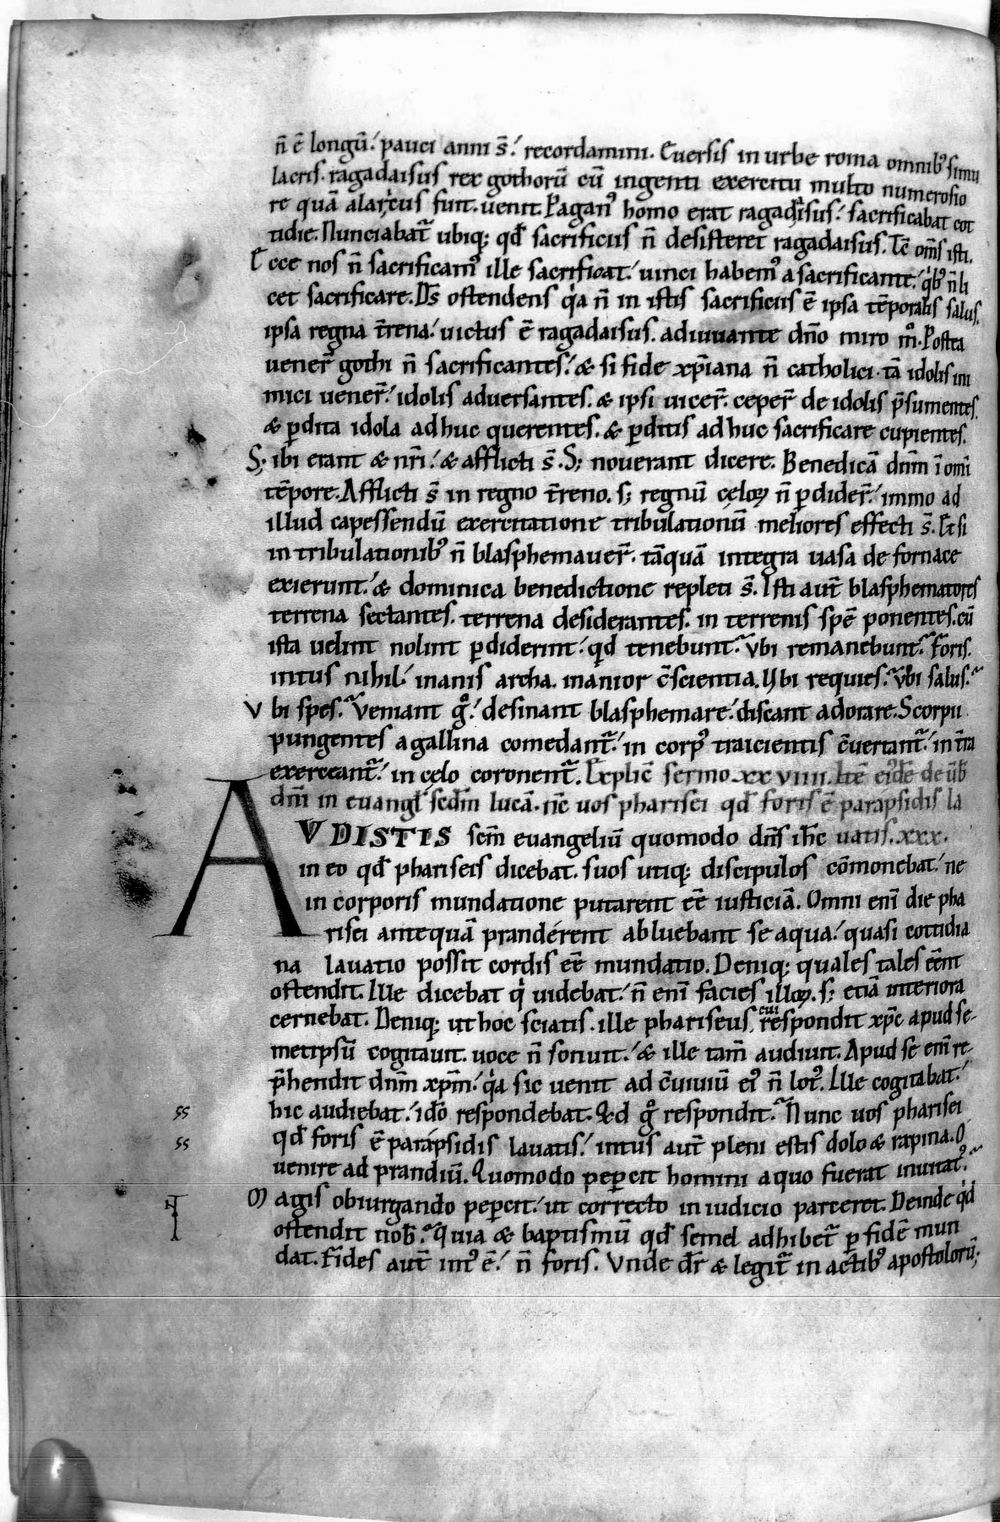 n̄ ē longū. pauci anni s̄. recordamini. Euersis in urbe roma omnibꝰ simu
lacris. ragadaisus rex gothorū cū ingenti exercitu multo numerosio
re quā alaricus fuit. uenit. Paganꝰ homo erat ragadaisus. sacrificabat cot
tidie. Nunciabat̄ ubiq; qd̄ sacrificiis n̄ desisteret ragadaisus. Tc̄ om̄s isti.
Ecce nos n̄ sacrificamꝰ ille sacrificat. uinci habemꝰ a sacrificante. qͥbꝰ n̄ li
cet sacrificare. Ds̄ ostendens qͥa n̄ in istis sacrificiis ē ipsa tēporalis salus.
ipsa regna t̄rena. uictus ē ragadaisus. adiuuante dn̄o miro m̊. Postea
uener̄ gothi n̄ sacrificantes. & si fide xp̄iana n̄ catholici. tā idolis ini
mici uener̄. idolis aduersantes. & ipsi uicer̄. ceper̄ de idolis p̄sumentes.
& ꝑdita idola adhuc querentes. & ꝑditis adhuc sacrificare cupientes.
S; ibi erant & nr̄i. & afflicti s̄. S; nouerant dicere. Benedicā dnm̄ ī om̄i
tēpore. Afflicti s̄ in regno t̄reno. s; regnū cęloꝝ n̄ ꝑdider̄. immo ad
illud capessendū exercitatione tribulationū meliores effecti s̄. Et si
in tribulationibꝰ n̄ blasphemauer̄. tāquā integra uasa de fornace
exierunt. & dominica benedictione repleti s̄. Isti aut̄ blasphematores
terrena sectantes. terrena desiderantes. in terrenis spē ponentes. cū
ista uelint nolint ꝑdiderint. qd̄ tenebunt. vbi remanebunt. foris.
intus nihil. inanis archa. inanior c̄scientia. Vbi requies. vbi salus.
Vbi spes. Veniant g̊. desinant blasphemare. discant adorare. Scorpii
pungentes a gallina comedant̄. in corpꝰ traicientis c̄uertant̄. in t̄ra
exerceant̄. in cęlo coronent̄. Explic̄ sermo xxviiii. Itē eiꝰdē de ūb
dn̄i in euangl̄ scd̄m lucā. nc̄ uos pharisei qd̄ foris ē parapsidis la
AVDISTIS scm̄ euangeliū quomodo dn̄s ih̄c uatis. xxx.
in eo qd̄ phariseis dicebat. suos utiq; discipulos cōmonebat. ne
in corporis mundatione putarent eē iusticiā. Omni enī die pha
risei antequā pranderent abluebant se aqua. quasi cottidia
na lauatio possit cordis eē mundatio. Deniq; quales tales eēnt
ostendit. Ille dicebat qͥ uidebat. n̄ enī facies illoꝝ. s; etiā interiora
cernebat. Deniq; ut hoc sciatis. ille phariseus cui respondit xp̄c apud se-
metipsū cogitauit. uoce n̄ sonuit. & ille tam̄ audiuit. Apud se enī re
p̄hendit dnm̄ xp̄m. qͥa sic uenit ad c̄uiuiū eiꝰ n̄ lotꝰ. Ille cogitabat.
hic audiebat. ido̅ respondebat. Qd g̊ respondit. Nunc uos pharisei
qd̄ foris ē parapsidis lauatis. intus aut̄ pleni estis dolo & rapina. O
uenire ad prandiū. Quomodo pepercit homini a quo fuerat inuitatꝰ.
Magis obiurgando pepercit. ut correcto in iudicio parceret. Deinde qͥd
ostendit nob̄. Quia & baptismū qd̄ semel adhibet̄ ꝑ fidē mun
dat. Fides aut̄ intꝰ ē. n̄ foris. Vnde dr̄ & legit̄ in actibꝰ apostolorū;